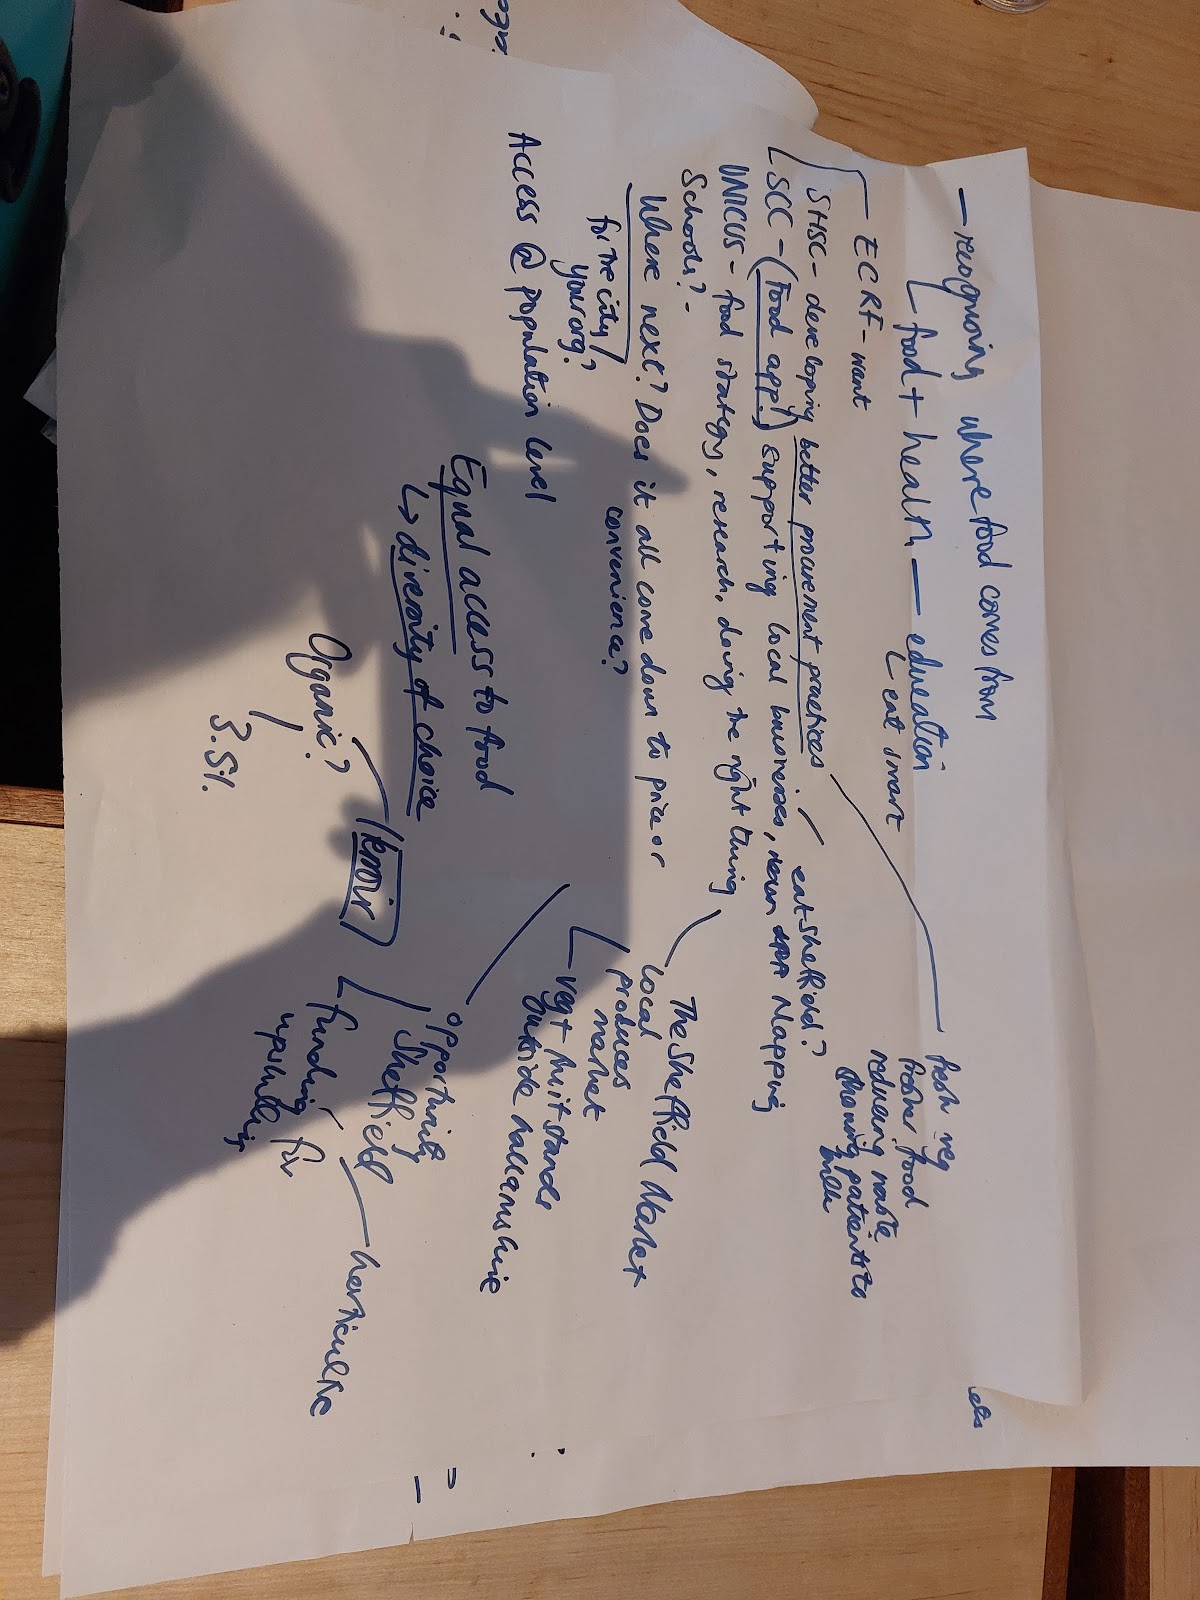 — recognising where food comes from
food + health — education
eat smart
ECRF - want
SHSC - developing better procurement practices.
eatsheffield?
fresh veg
fresher food
reducing waste
showing patients to
milk
SCC - (food app!) supporting local businesses, Mapping
UNICUS - food strategy, research, doing the right thing
Schools? -
The Sheffield Market
local
produces
market
Where next? Does it all come down to price or
convenience?
for the city/
your org?
veg + fruit stands
outside hallamshire
Access @ population level
Equal access to food
↳ diversity of choice
opportunity
Sheffield
horticulture
funding for
upskilling
know
Organic?
3.5%